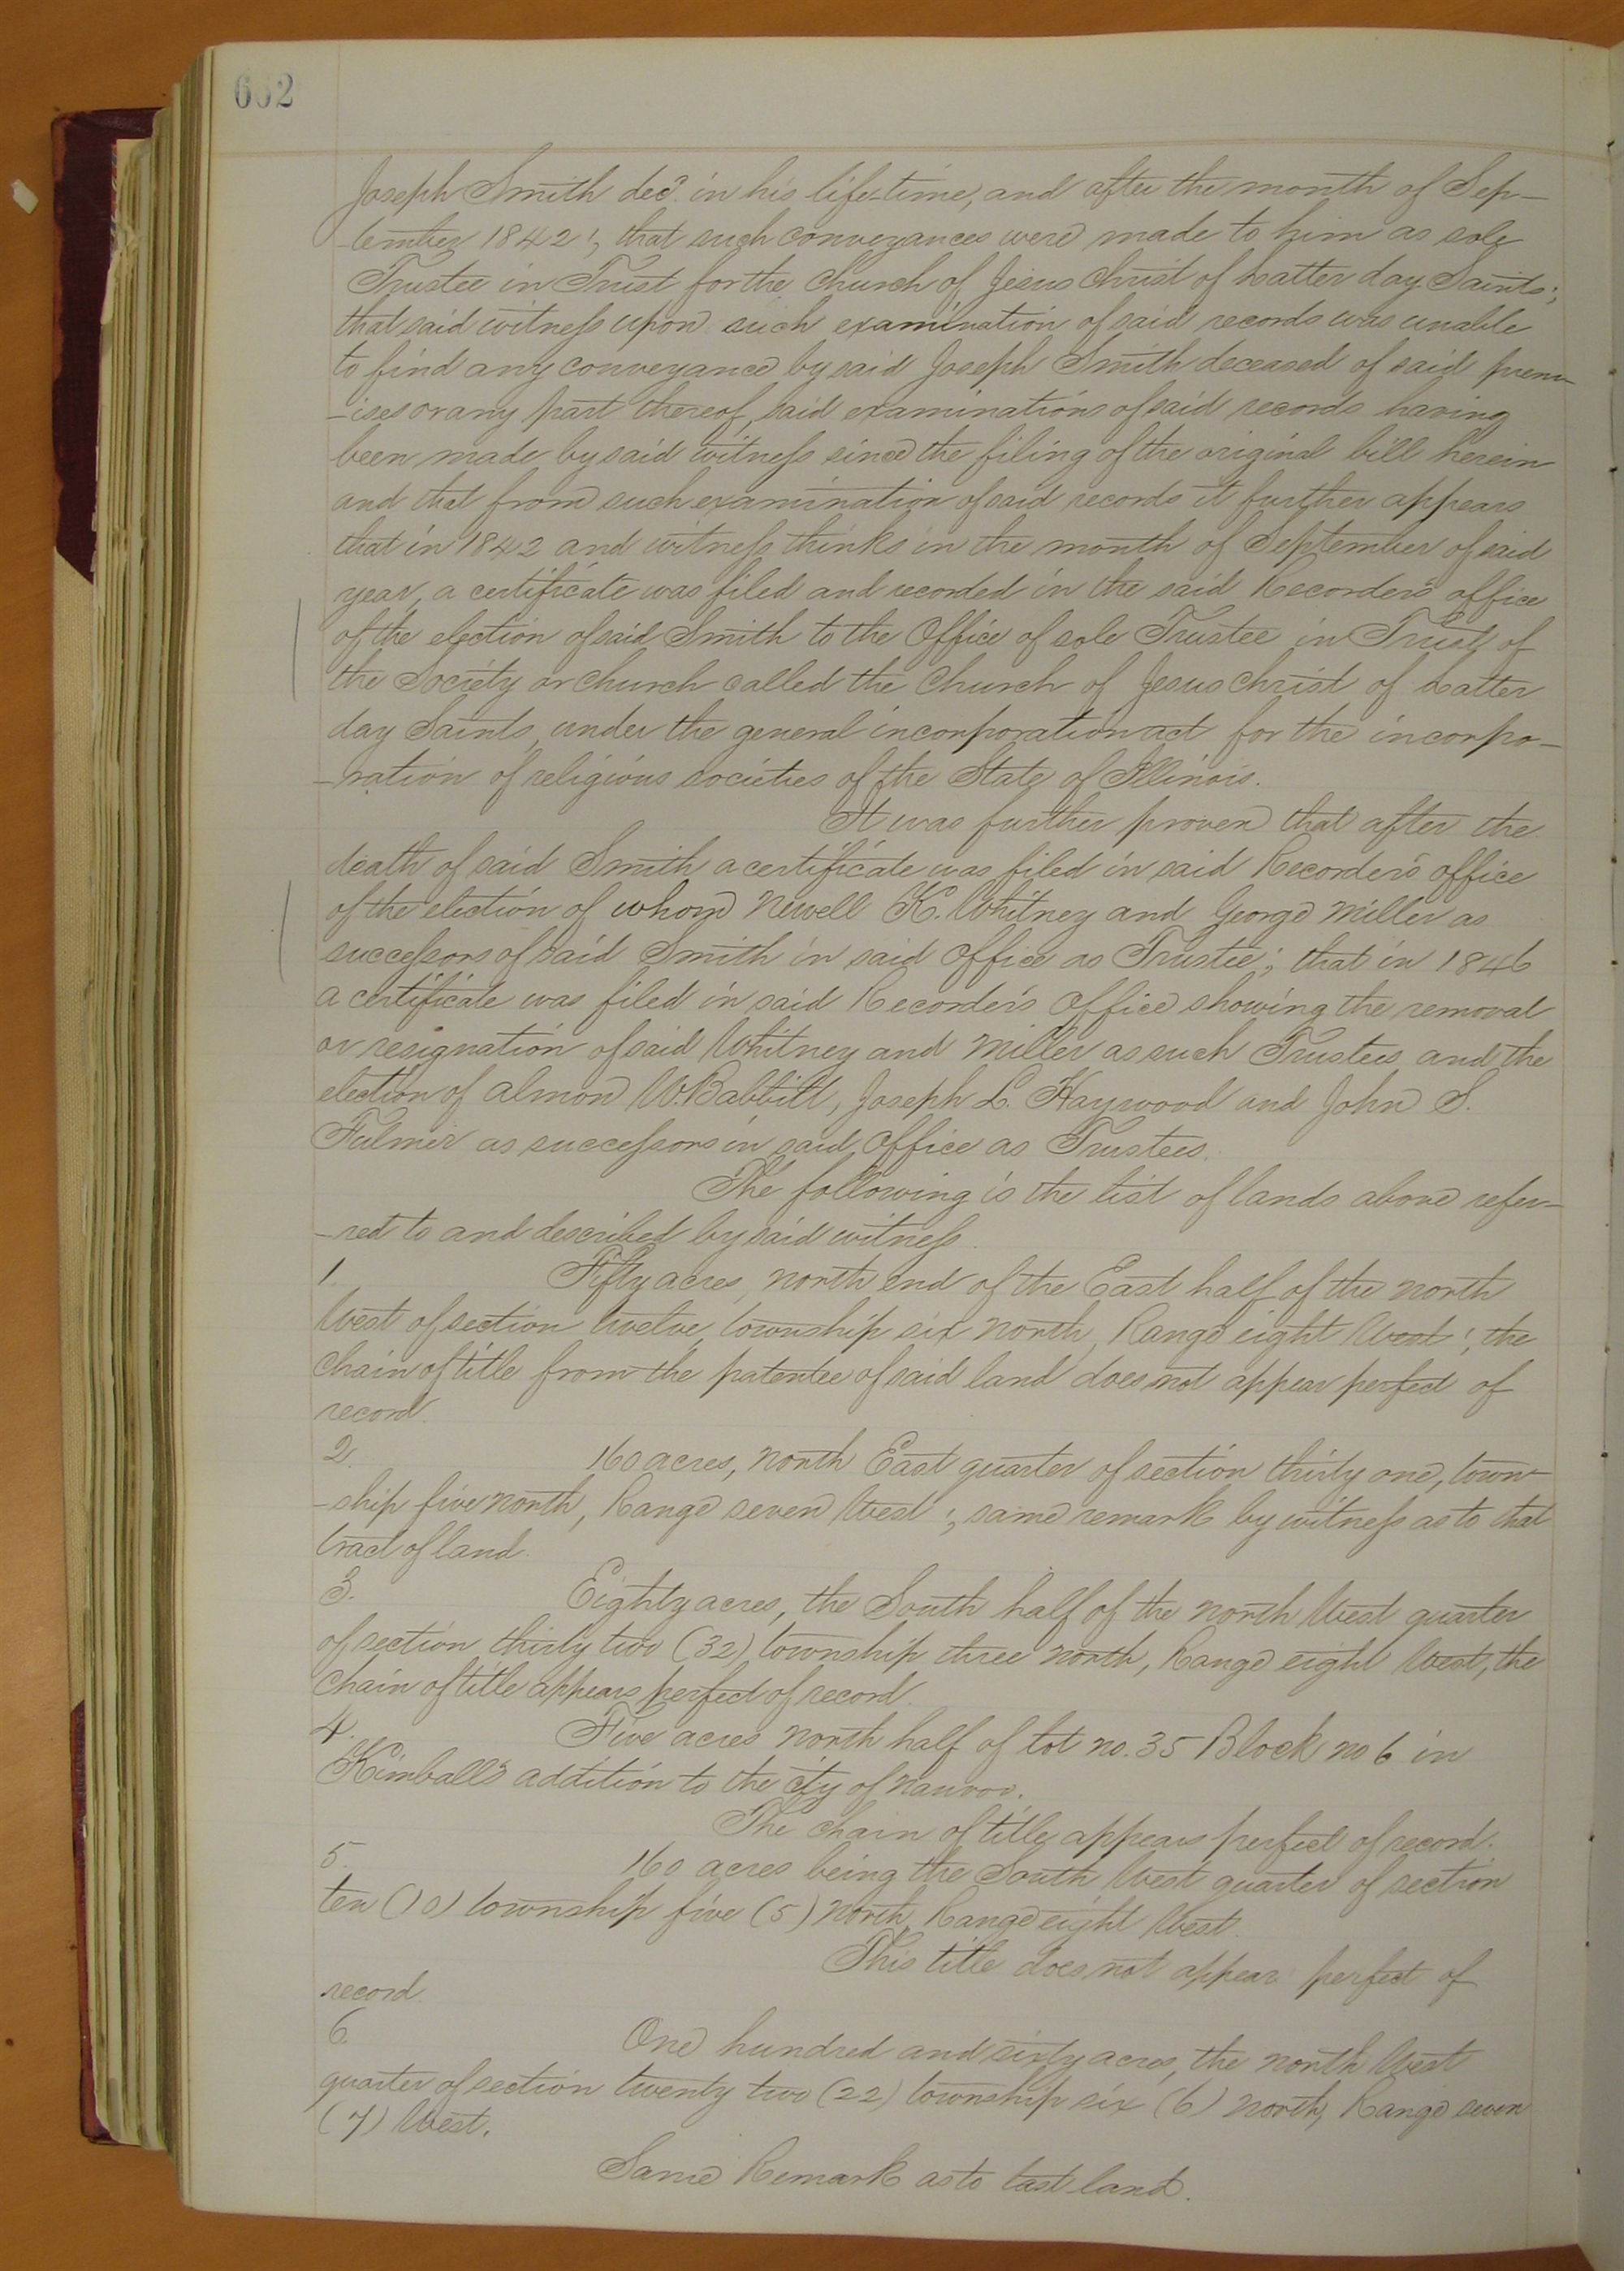 602
Joseph Smith decd. in his life-time, and after the month of Sep-
-tember 1842; that such conveyances were made to him as sole
Trustee in Trust for the Church of Jesus Christ of Latter day Saints;
that said witness upon such examination of said records was unable
to find any conveyance by said Joseph Smith deceased of said prem-
-ises or any part thereof, said examinations of said records having
been made by said witness since the filing of the original bill herein
and that from such examination of said records it further appears
that in 1842 and witness thinks in the month of September of said
year, a certificate was filed and recorded in the said Recorder's office
of the election of said Smith to the Office of sole Trustee in Trust of
the Society or Church called the Church of Jesus Christ of Latter
day Saints, under the general incorporation act for the incorpo-
-ration of religious societies of the State of Illinois.
It was further proven that after the
death of said Smith a certificate was filed in said Recorder's office
of the election of whom Newell K. Whitney and George Miller as
successors of said Smith in said office as Trustee; that in 1846
a certificate was filed in said Recorder's Office showing the removal
or resignation of said Whitney and Miller as such Trustees and the
election of Almon W. Babbitt, Joseph L. Haywood and John S.
Fulmer as successors in said office as Trustees.
The following is the list of lands above refer-
-red to and described by said witness.
1. Fifty acres, north end of the East half of the north
West of section twelve, township six north, Range eight West; the
chain of title from the patentee of said land does not appear perfect of
record.
2. 160 acres, north East quarter of section thirty one, town-
-ship five north, Range seven West; same remark by witness as to that
tract of land.
3. Eighty acres, the South half of the north West quarter
of section thirty two (32) township three north, Range eight West, the
chain of title appears perfect of record.
4. Five acres north half of lot no. 35 Block no 6 in
Kimball's addition to the city of Nauvoo.
The chain of title appears perfect of record.
5. 160 acres being the South West quarter of section
ten (10) township five (5) north, Range eight West.
This title does not appear perfect of
record.
6 One hundred and sixty acres, the north West
quarter of section twenty two (22) township six (6) north, Range seven
(7) West.
Same Remark as to last land.